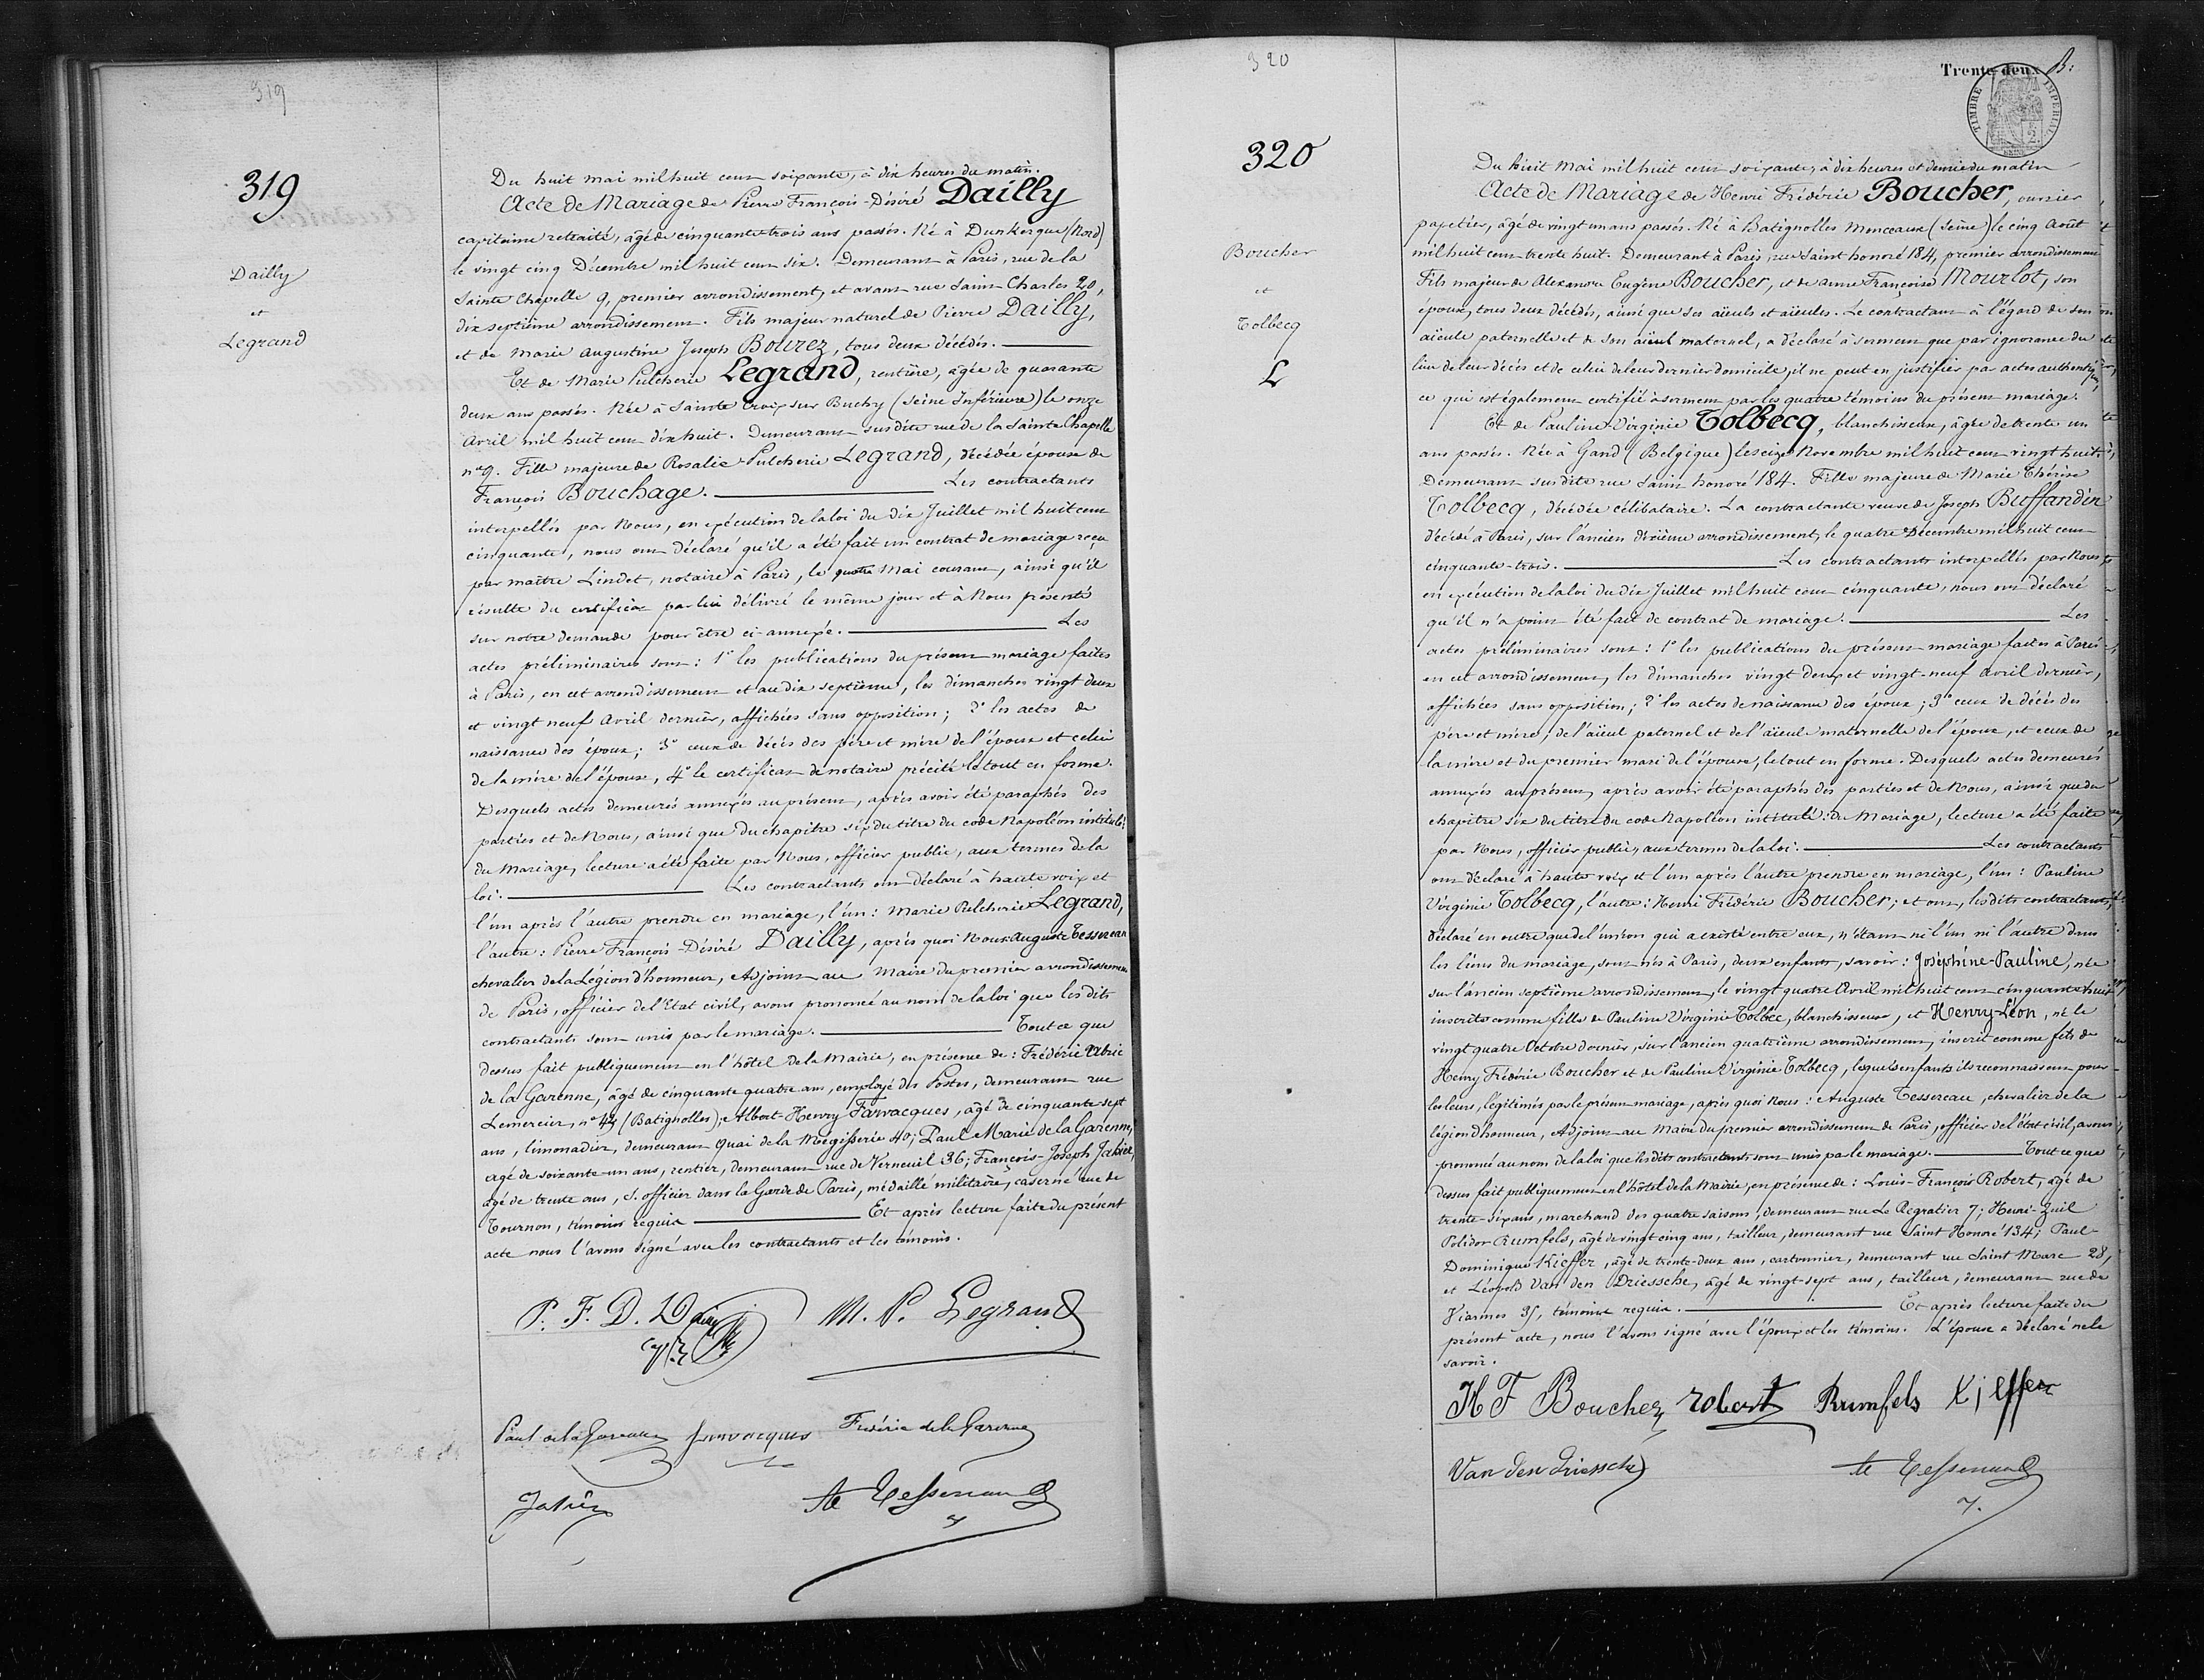 319
319
Dailly
et
Legrand
Du huit mai mil huit cent soixante, à dix heures du matin.
Acte de Mariage de Pierre François-Désiré Dailly
capitaine retraité, âgé de cinquante trois ans passés. Né à Dunkerque (Nord)
le vingt cinq Décembre mil huit cent six. Demeurant à Paris, rue de la
Sainte Chapelle 9, premier arrondissement, et avant rue Saint Charles 20,
dix septième arrondissement. Fils majeur naturel de Pierre Dailly,
et de Marie Augustine Joseph Bourez, tous deux décédés.
Et de Marie Pulcherie Legrand, rentière, âgée de quarante
deux ans passés. Née à Sainte Croix sur Buchy (Seine Inférieure) le onze
Avril mil huit cent dix huit. Demeurant susdite rue de la Sainte Chapelle
n° 9. Fille majeure de Rosalie Pulcherie Legrand, décédée épouse de
François Bouchage. Les contractants
interpellés par Nous, en exécution de la loi du dix Juillet mil huit cent
cinquante, nous ont déclaré qu'il a été fait un contrat de mariage reçu
par maître Lindet, notaire à Paris, le quatre Mai courant, ainsi qu'il
résulte du certificat par lui délivré le même jour et à Nous présenté
sur notre demande pour être ci-annexé. Les
actes préliminaires sont : 1° les publications du présent mariage faites
à Paris, en cet arrondissement et au dix septième, les dimanches vingt deux
et vingt neuf Avril dernier, affichées sans opposition ; 2° les actes de
naissance des époux ; 3° ceux de décès des père et mère de l'époux et celui
de la mère de l'épouse, 4° le certificat de notaire précité le tout en forme.
Desquels actes demeurés annexés au présent, après avoir été paraphés des
parties et de Nous, ainsi que du chapitre six du titre du code Napoléon intitulé :
du Mariage, lecture a été faite par Nous, officier public, aux termes de la
loi. Les contractants ont déclaré à haute voix et
l'un après l'autre prendre en mariage, l'un : Marie Pulcherie Legrand,
l'autre : Pierre François-Désiré Dailly, après quoi Nous Auguste Tessereau
chevalier de la Légion d'honneur, Adjoint au Maire du premier arrondissement
de Paris, officier de l'Etat civil, avons prononcé au nom de la loi que les dits
contractants sont unis par le mariage. Tout ce que
dessus fait publiquement en l'hôtel de la Mairie, en présence de : Frédéric Abric
de la Garenne, âgé de cinquante quatre ans, employé des Postes, demeurant rue
Lemercier, n° 44 (Batignolles) ; Albert-Henry Farvacques, âgé de cinquante-sept
ans, limonadier, demeurant quai de la Mégisserie 40 ; Paul Marie de la Garenne,
âgé de soixante-un ans, rentier, demeurant rue de Verneuil 36 ; François-Joseph Jahier,
âgé de trente ans, s. officier dans la Garde de Paris, médaillé militaire, caserné rue de
Tournon, témoins requis Et après lecture faite du présent
acte nous l'avons signé avec les contractants et les témoins.
P. F. D. Dailly M. P. Legrand
Paul de la Garenne Farvacques Frédéric de la Garenne
Jahier Ate Tessereau
320
Trente-deux
TIMBRE IMPERIAL
320
Boucher
et
Tolbecq
L
Du huit mai mil huit cent soixante, à dix heures et demie du matin
Acte de Mariage de Henri Frédéric Boucher, ouvrier
papetier, âgé de vingt un ans passés. Né à Batignolles Monceaux (Seine) le cinq Août
mil huit cent trente huit. Demeurant à Paris, rue Saint honoré 184, premier arrondissement
Fils majeur de Alexandre Eugène Boucher, et de Anne Françoise Mourlot, son
épouse, tous deux décédés, ainsi que ses aïeuls et aïeules. Le contractant à l'égard de son
aïeule paternelle et de son aïeul maternel, a déclaré à serment que par ignorance du
lieu de leur décès et de celui de leur dernier domicile, il ne peut en justifier par actes authentiques,
ce qui est également certifié à serment par les quatre témoins du présent mariage.
Et de Pauline Virginie Tolbecq, blanchisseuse, âgée de trente un
ans passés. Née à Gand (Belgique) le seize Novembre mil huit cent vingt huit.
Demeurant susdite rue Saint honoré 184. Fille majeure de Marie Thérèse
Tolbecq, décédée célibataire. La contractante veuve de Joseph Buffandin
décédé à Paris, sur l'ancien dixième arrondissement, le quatre Décembre mil huit cent
cinquante-trois. Les contractants interpellés par Nous
en exécution de la loi du dix Juillet mil huit cent cinquante, nous ont déclaré
qu'il n'a point été fait de contrat de mariage. Les
actes préliminaires sont : 1° les publications du présent mariage faites à Paris
en cet arrondissement, les dimanches vingt deux et vingt-neuf avril dernier,
affichées sans opposition ; 2° les actes de naissance des époux ; 3° ceux de décès des
père et mère, de l'aïeul paternel et de l'aïeule maternelle de l'époux, et ceux de
la mère et du premier mari de l'épouse, le tout en forme. Desquels actes demeurés
annexés au présent, après avoir été paraphés des parties et de Nous, ainsi que du
chapitre six du titre du code Napoléon intitulé : du Mariage, lecture a été faite
par Nous, officier public, aux termes de la loi. Les contractants
ont déclaré à haute voix et l'un après l'autre prendre en mariage, l'un : Pauline
Virginie Tolbecq, l'autre : Henri Frédéric Boucher ; et ont, les dits contractants,
déclaré en outre que de l'union qui a existé entre eux, n'étant ni l'un ni l'autre dans
les liens du mariage, sont nés à Paris, deux enfants, savoir : Joséphine-Pauline, née
sur l'ancien septième arrondissement, le vingt quatre Avril mil huit cent cinquante huit
inscrite comme fille de Pauline Virginie Tolbec, blanchisseuse, et Henry-Léon, né le
vingt quatre Octobre dernier, sur l'ancien quatrième arrondissement, inscrit comme fils de
Henry Frédéric Boucher et de Pauline Virginie Tolbecq, lesquels enfants ils reconnaissent pour
les leurs, légitimés par le présent mariage, après quoi Nous : Auguste Tessereau, chevalier de la
légion d'honneur, Adjoint au Maire du premier arrondissement de Paris, officier de l'état civil, avons
prononcé au nom de la loi que les dits contractants sont unis par le mariage. Tout ce que
dessus fait publiquement en l'hôtel de la Mairie, en présence de : Louis-François Robert, âgé de
trente-six ans, marchand des quatre saisons, demeurant rue Le Regratier 7 ; Henri-Zuil
Polidor Rumfels, âgé de vingt cinq ans, tailleur, demeurant rue Saint Honoré 134 ; Paul-
Dominique Kieffer, âgé de trente-deux ans, cartonnier, demeurant rue Saint Marc 28,
et Léopold Van den Driessche, âgé de vingt-sept ans, tailleur, demeurant rue de
Viarmes 35, témoins requis. Et après lecture faite du
présent acte, nous l'avons signé avec l'époux et les témoins. L'épouse a déclaré ne le
savoir.
H F Boucher robert Rumfels Kieffer
Van den Driessche Ate Tessereau